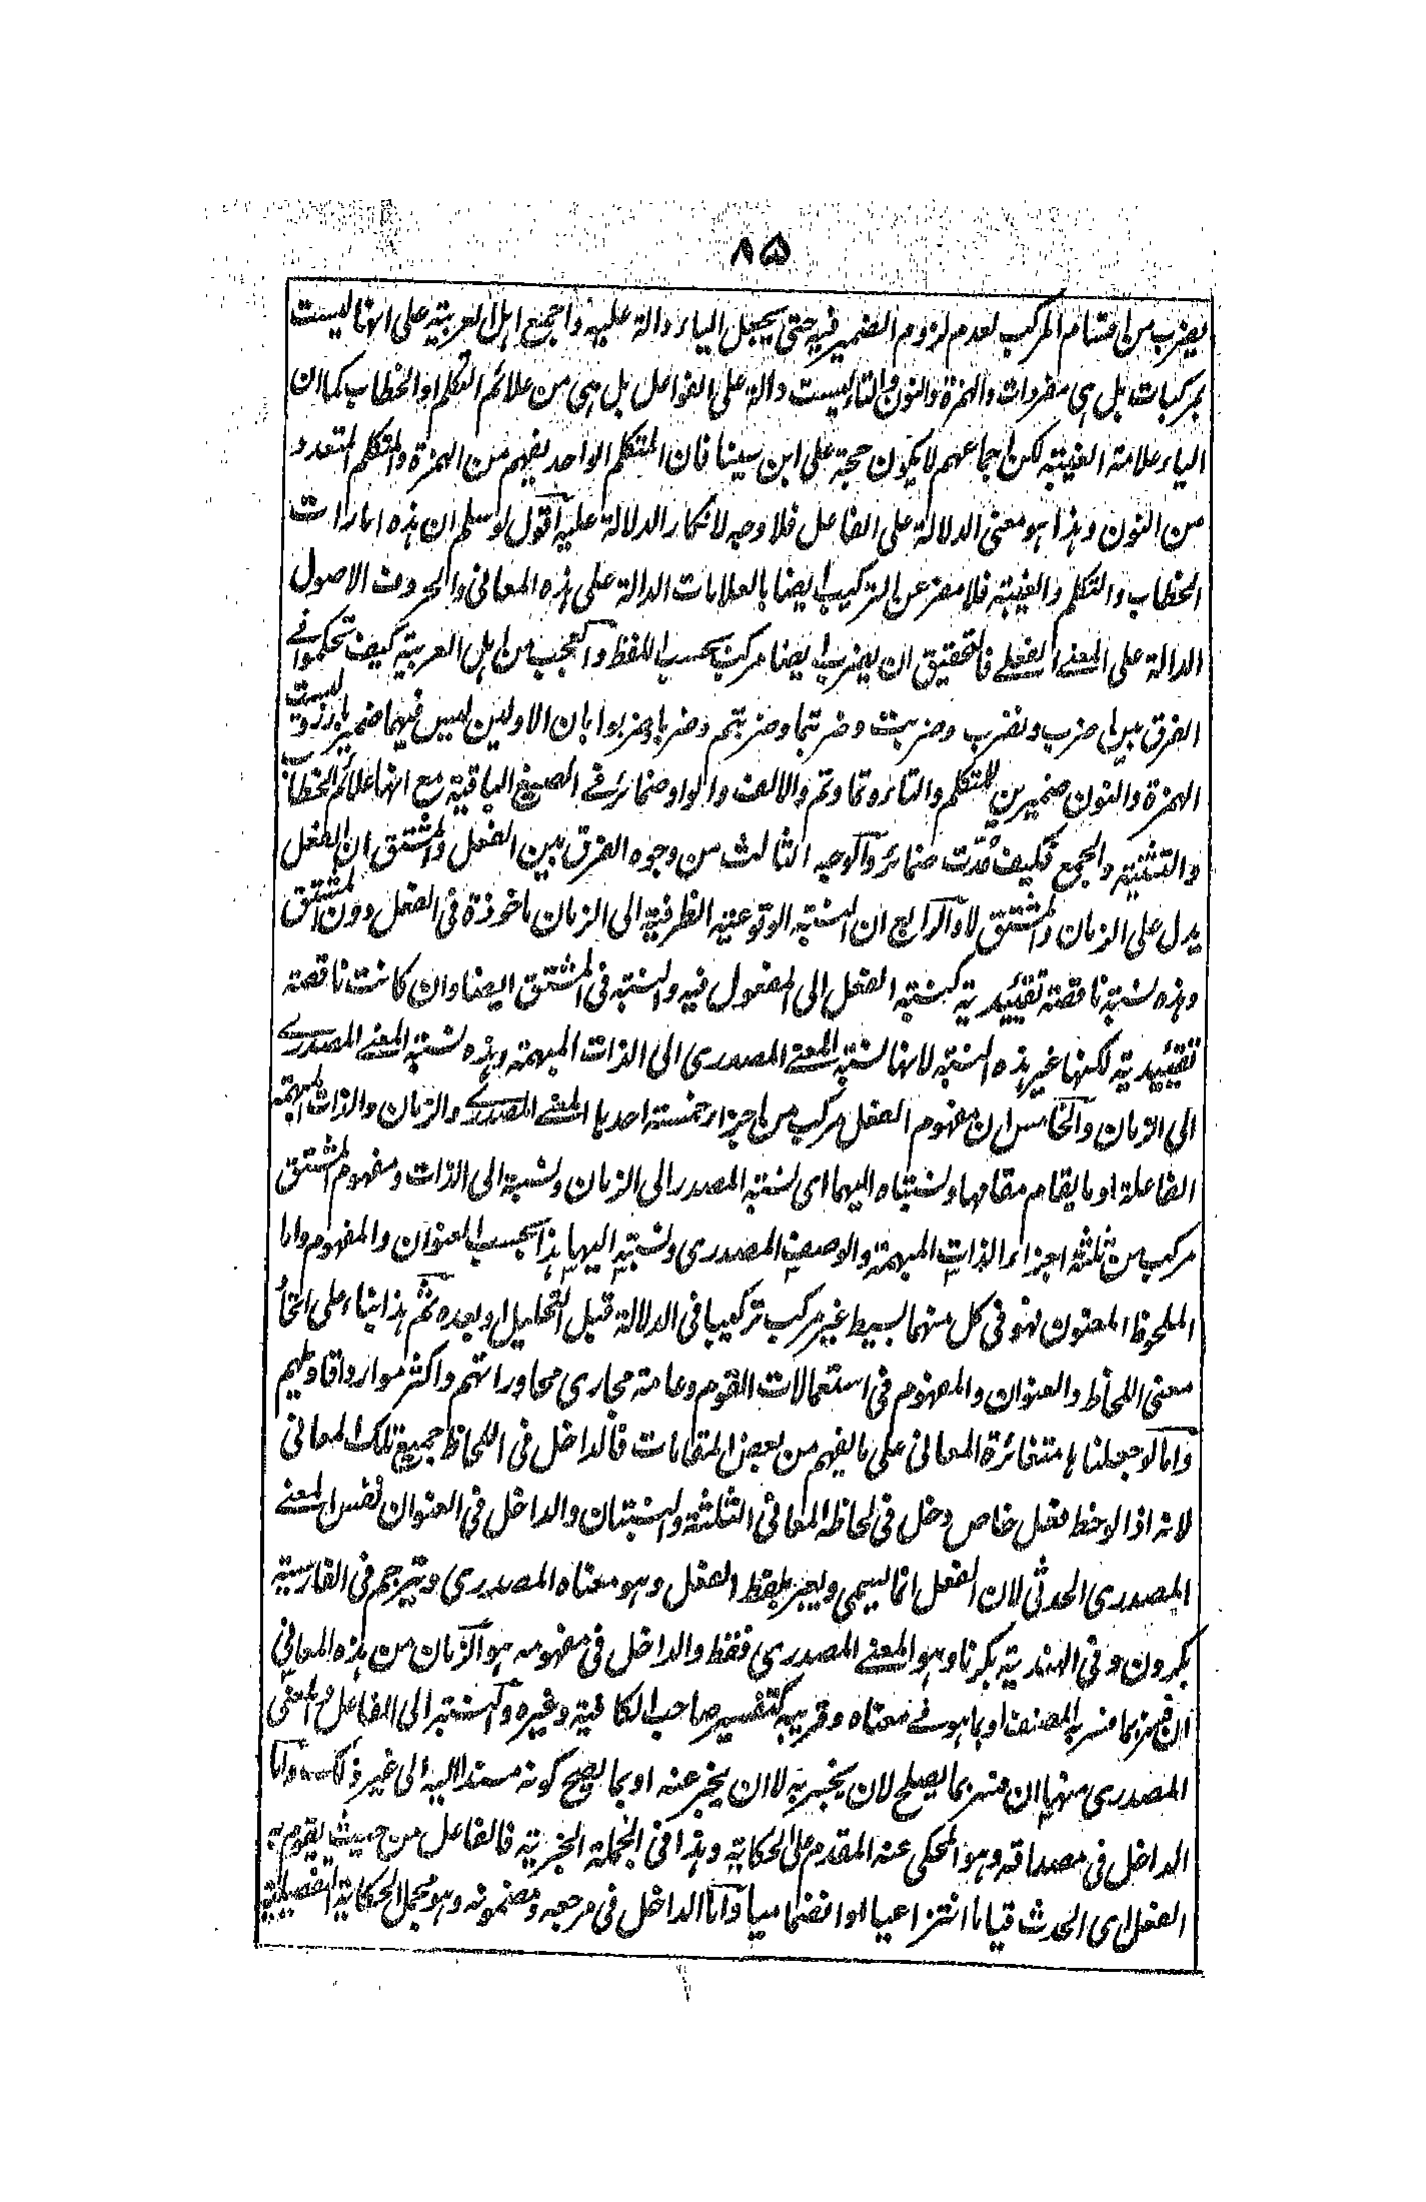 ۸۵
يضرب من اقسام المركب لعدم لزوم الضمير فيه حتى يجعل الياء دالة عليه واجمع اهل العربية على انها ليست
بمركبات بل هى مفردات والهمزة والنون والتاء ليست دالة على الفواعل بل هى من علائم التكلم او الخطاب كما ان
الياء علامة الغيبة لكن اجماعهم لا يكون حجة على ابن سينا فان المتكلم الواحد يفهم من الهمزة والمتكلم المتعدد
من النون وهذا هو معنى الدلالة على الفاعل فلا وجه لانكار الدلالة عليه اقول لو سلم ان هذه امارات
الخطاب والتكلم والغيبة فلا مفر عن التركيب ايضا بالعلامات الدالة على هذه المعانى والحروف الاصول
الدالة على المعنى الفعلى فالتحقيق ان يضرب ايضا مركب بحسب اللفظ والعجب من اهل العربية كيف تحكموا فى
الفرق بين اضرب ونضرب وضربت وضربتما وضربتم وضربا وضربوا بان الاولين ليس فيهما ضمير بارز وليست
الهمزة والنون ضميرين للمتكلم والتاء وتما وتم والالف والواو ضمائر فى الصيغ الباقية مع انها علائم الخطاب
والتثنية والجمع فكيف عُدّت ضمائر والوجه الثالث من وجوه الفرق بين الفعل والمشتق ان الفعل
يدل على الزمان والمشتق لا والرابع ان النسبة الوقوعية الظرفية الى الزمان ماخوذة فى الفعل دون المشتق
وهذه نسبة ناقصة تقييدية كنسبة الفعل الى المفعول فيه والنسبة فى المشتق ايضا وان كانت ناقصة
تقييدية لكنها غير هذه النسبة لانها نسبة المعنى المصدرى الى الذات المبهمة وهذه نسبة المعنى المصدرى
الى الزمان والخامس ان مفهوم الفعل مركب من اجزاء خمسة احدها المعنى المصدرى والزمان والذات المبهمة
الفاعلة او ما يقام مقامها ونسبتاه اليهما اى نسبة المصدر الى الزمان ونسبة الى الذات ومفهوم المشتق
مركب من ثلثة اجزاء الذات المبهمة والوصف المصدرى ونسبته اليها هذا بحسب العنوان والمفهوم واما
الملحوظ المعنون فهو فى كل منهما بسيط غير مركب تركيبا فى الدلالة قبل التحليل او بعده ثم هذا بناء على اتحاد
معنى اللحاظ والعنوان والمفهوم فى استعمالات القوم وعامة مجارى محاوراتهم واكثر موارد اقاويلهم
واما لو جعلناها متغائرة المعانى على ما يفهم من بعض المقامات فالداخل فى اللحاظ جميع تلك المعانى
لانه اذا لوحظ فعل خاص دخل فى لحاظه المعانى الثلثة والنسبتان والداخل فى العنوان نفس المعنى
المصدرى الحدثى لان الفعل انما يسمى ويعبر بلفظ الفعل وهو معناه المصدرى ويترجم فى الفارسية
بكردن وفى الهندية بكرنا وهو المعنى المصدرى فقط والداخل فى مفهومه هو الزمان من هذه المعانى
ان فسر بما فسر به المصنف او بما هو فى معناه وقريبه كتفسير صاحب الكافية وغيره والنسبة الى الفاعل والمعنى
المصدرى منها ان فسر بما يصلح لان يخبر به لا ان يخبر عنه او بما يصح كونه مسندا اليه الى غير ذلك واما
الداخل فى مصداقه وهو المحكى عنه المقدم على الحكاية وهذا فى الجملة الخبرية فالفاعل من حيث يقوم به
الفعل اى الحدث قياما انتزاعيا او انضماميا واما الداخل فى مرجعه ومضمونه وهو مجمل الحكاية التفصيلية